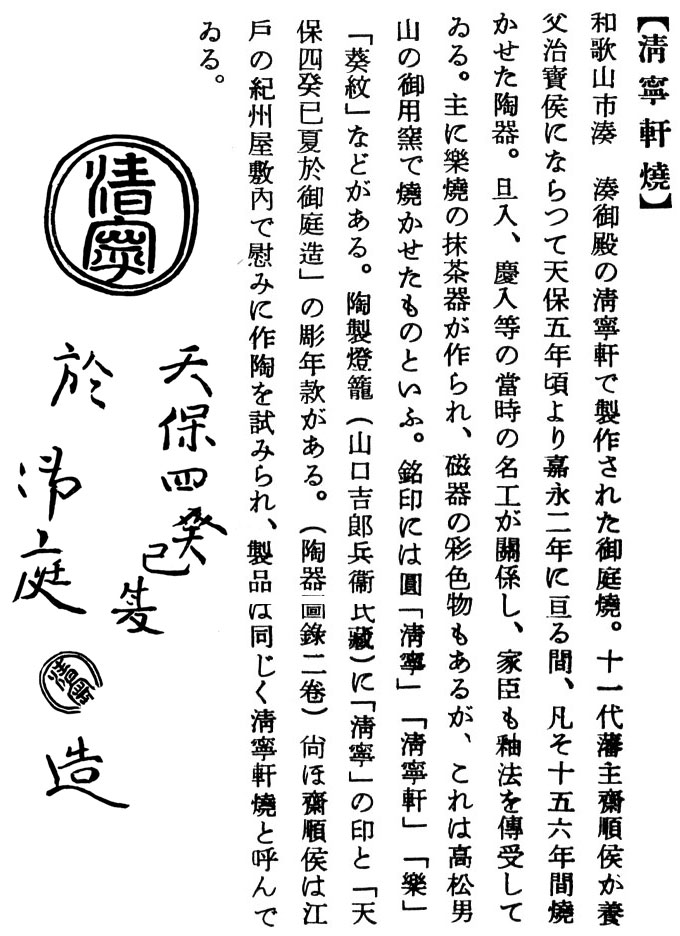 【淸寧軒燒】
和歌山市湊　湊御殿の淸寧軒で製作された御庭燒。十一代藩主齋順侯が養
父治寶侯にならつて天保五年頃より嘉永二年に亘る間、凡そ十五六年間燒
かせた陶器。旦入、慶入等の當時の名工が關係し、家臣も釉法を傳受して
ゐる。主に樂燒の抹茶器が作られ、磁器の彩色物もあるが、これは高松男
山の御用窯で燒かせたものといふ。銘印には圓「淸寧」「淸寧軒」「樂」
「葵紋」などがある。陶製燈籠（山口吉郎兵衞氏藏）に「淸寧」の印と「天
保四癸巳夏於御庭造」の彫年款がある。（陶器圖錄二卷）尙ほ齋順侯は江
戶の紀州屋敷內で慰みに作陶を試みられ、製品は同じく淸寧軒燒と呼んで
ゐる。
清寧
天保四癸巳夏
於御庭
清寧
造